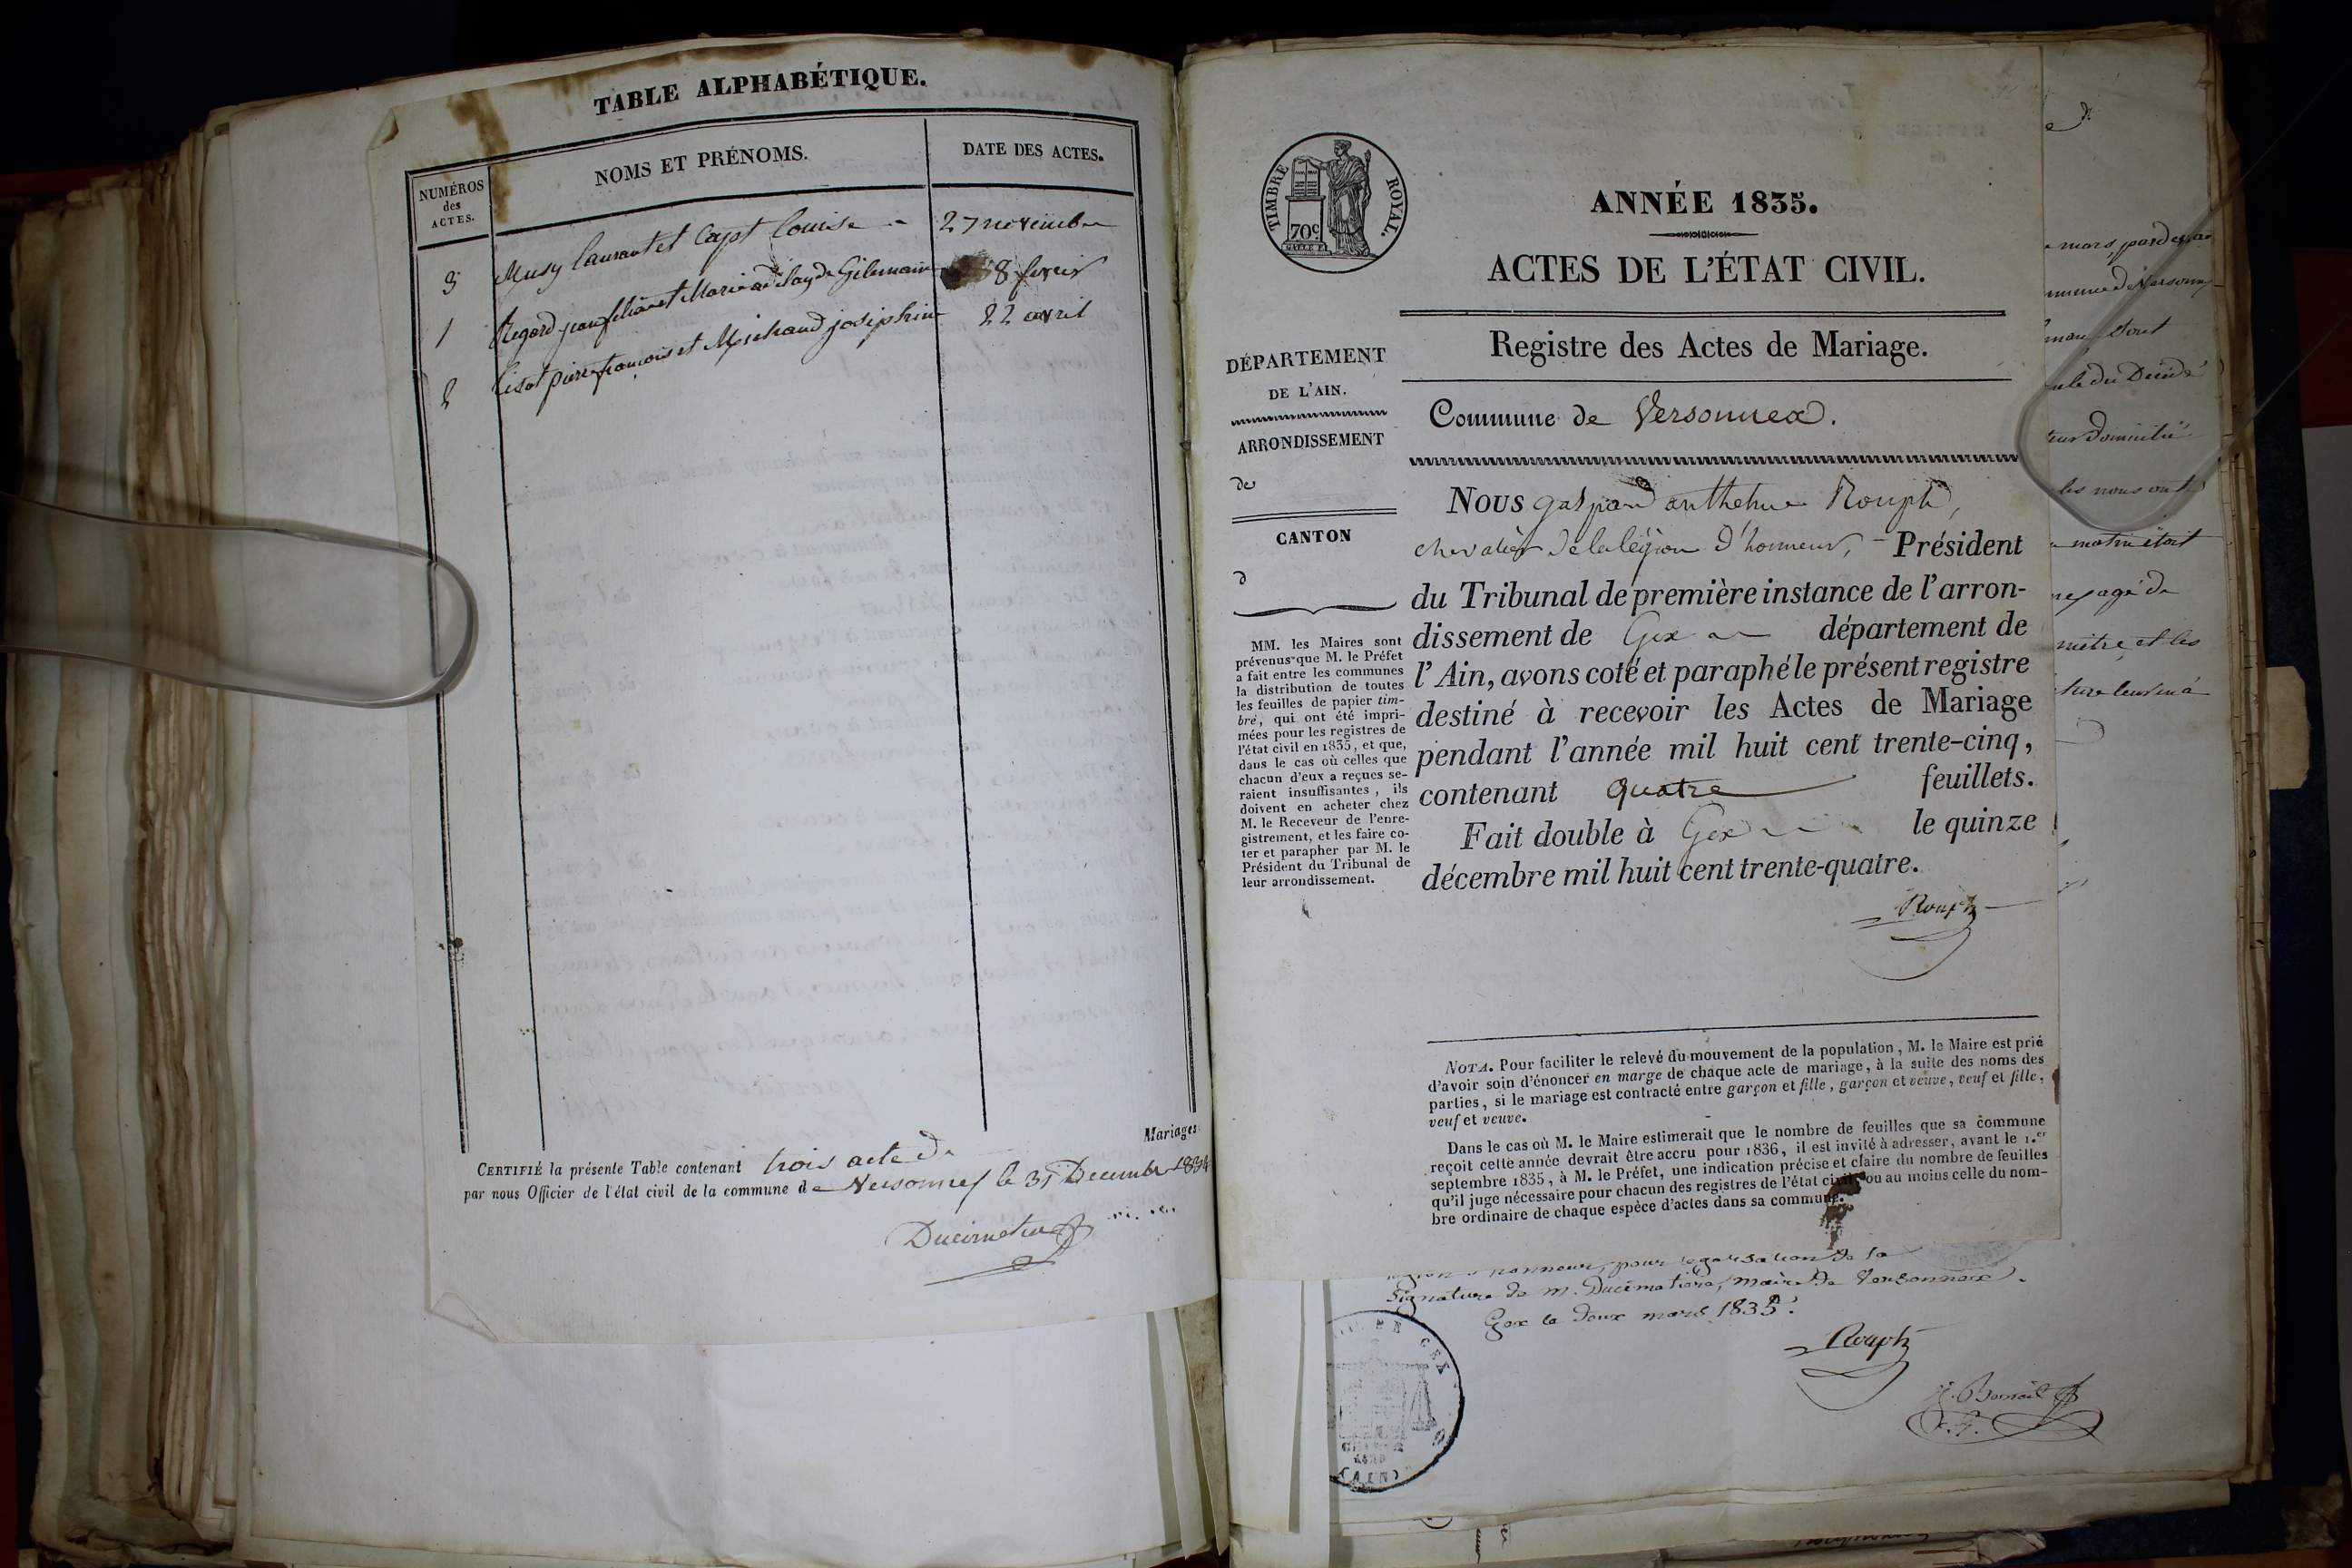 TABLE ALPHABÉTIQUE.
NUMÉROS
des
ACTES.
NOMS ET PRÉNOMS.
DATE DES ACTES.
3 Musy Laurant et Capt Louise 27 novembre
1 Regard jean et Marie 8
2 pierre françois et josephine 22 avril
Mariages
CERTIFIÉ la présente Table contenant trois acte de
par nous Officier de l'état civil de la commune de Versonnex le 31 Decembre 1834
Ducimetiere
TIMBRE ROYAL.
70c
ANNÉE 1835.
ACTES DE L'ÉTAT CIVIL.
Registre des Actes de Mariage.
DÉPARTEMENT
DE L'AIN.
ARRONDISSEMENT
de
CANTON
d
MM. les Maires sont
prévenus que M. le Préfet
a fait entre les communes
la distribution de toutes
les feuilles de papier tim-
bré, qui ont été impri-
mées pour les registres de
l'état civil en 1835, et que,
dans le cas où celles que
chacun d'eux a reçues se-
raient insuffisantes, ils
doivent en acheter chez
M. le Receveur de l'enre-
gistrement, et les faire co-
ter et parapher par M. le
Président du Tribunal de
leur arrondissement.
Commune de Versonnex.
NOUS gaspard anthelme Rouph,
chevalier de la légion d'honneur, Président
du Tribunal de première instance de l'arron-
dissement de Gex département de
l'Ain, avons coté et paraphé le présent registre
destiné à recevoir les Actes de Mariage
pendant l'année mil huit cent trente-cinq,
contenant quatre feuillets.
Fait double à Gex le quinze
décembre mil huit cent trente-quatre.
Rouph
NOTA. Pour faciliter le relevé du mouvement de la population, M. le Maire est prié
d'avoir soin d'énoncer en marge de chaque acte de mariage, à la suite des noms des
parties, si le mariage est contracté entre garçon et fille, garçon et veuve, veuf et fille,
veuf et veuve.
Dans le cas où M. le Maire estimerait que le nombre de feuilles que sa commune
reçoit cette année devrait être accru pour 1836, il est invité à adresser, avant le 1.er
septembre 1835, à M. le Préfet, une indication précise et claire du nombre de feuilles
qu'il juge nécessaire pour chacun des registres de l'état civil, ou au moins celle du nom-
bre ordinaire de chaque espèce d'actes dans sa commune.
honneur, pour legalisation de la
signature de m. Ducimetiere, maire de Versonnex.
Gex le deux mars 1835.
Rouph
GEX
(AIN)
mars, par
Versonnex
du Décidé
domicilié
nous ont
était
age de
et les